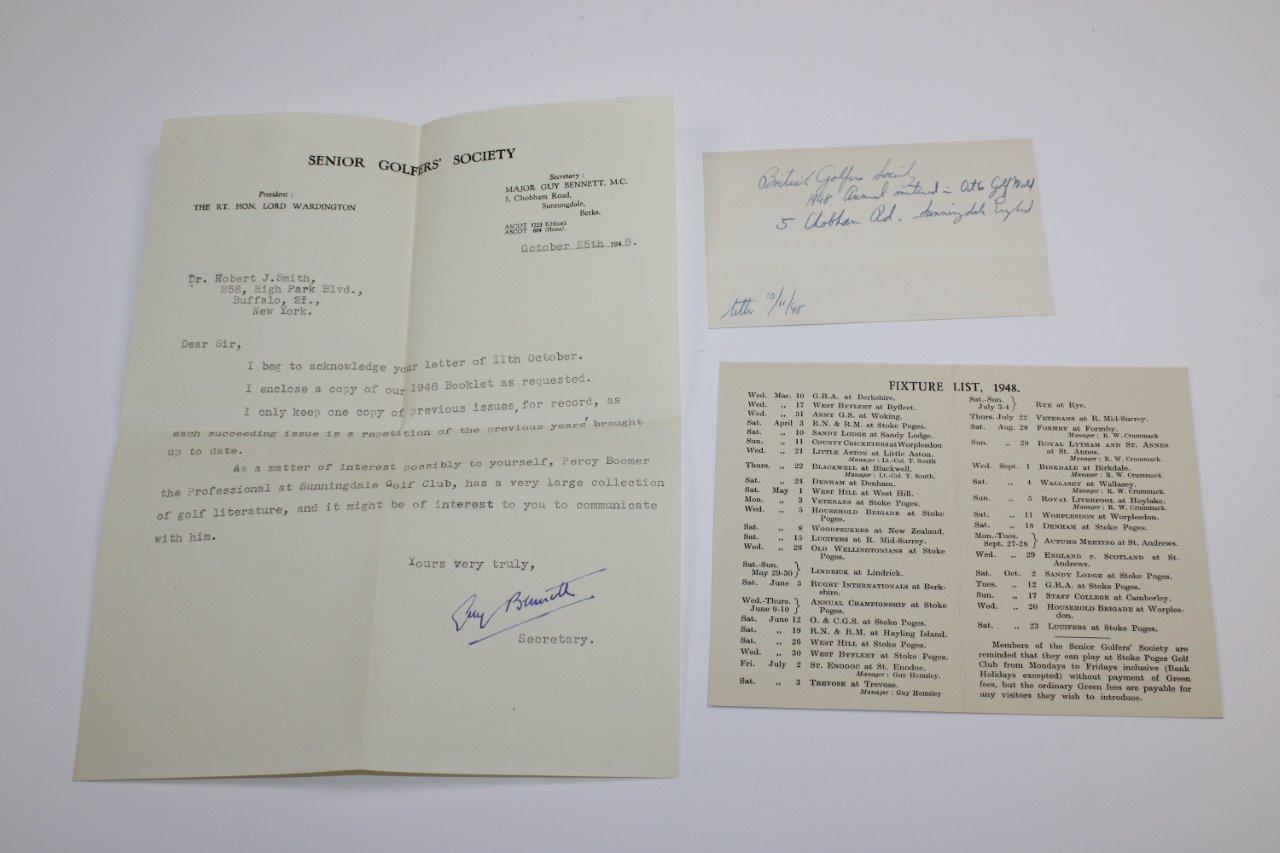 SENIOR GOLFERS' SOCIETY
President :
THE RT. HON. LORD WARDINGTON
Secretary :
MAJOR GUY BENNETT, M.C.
5, Chobham Road,
Sunningdale,
Berks.
ASCOT 1223 (Office).
ASCOT 604 (Home).
October 25th 1948.
Dr. Robert J.Smith,
258, High Park Blvd.,
Buffalo, 21.,
New York.
Dear Sir,
I beg to acknowledge your letter of IIth October.
I enclose a copy of our 1948 Booklet as requested.
I only keep one copy of previous issues, for record, as
each succeeding issue is a repetition of the previous years' brought
up to date.
As a matter of interest possibly to yourself, Percy Boomer
the Professional at Sunningdale Golf Club, has a very large collection
of golf literature, and it might be of interest to you to communicate
with him.
Yours very truly,
Guy Bennett
Secretary.
British Golfers Society
1948 Annual mentioned in Oct 6 Golf World
5 Chobham Rd. Sunningdale England
10/11/48
FIXTURE LIST, 1948.
Wed. Mar. 10 G.R.A. at Berkshire.
Wed. „ 17 WEST BYFLEET at Byfleet.
Wed. „ 31 ARMY G.S. at Woking.
Sat. April 3 R.N. & R.M. at Stoke Poges.
Sat. „ 10 SANDY LODGE at Sandy Lodge.
Sun. „ 11 COUNTY CRICKETERS at Worplesdon
Wed. „ 21 LITTLE ASTON at Little Aston.
Manager : Lt.-Col. T. South
Thurs. „ 22 BLACKWELL at Blackwell.
Manager : Lt.-Col. T. South.
Sat. „ 24 DENHAM at Denham.
Sat. May 1 WEST HILL at West Hill.
Mon. „ 3 VETERANS at Stoke Poges.
Wed. „ 5 HOUSEHOLD BRIGADE at Stoke
Poges.
Sat. „ 8 WOODPECKERS at New Zealand.
Sat. „ 15 LUCIFERS at R. Mid-Surrey.
Wed. „ 26 OLD WELLINGTONIANS at Stoke
Poges.
Sat.-Sun. May 29-30 } LINDRICK at Lindrick.
Sat. June 5 RUGBY INTERNATIONALS at Berk-
shire.
Wed.-Thurs. June 9-10 } ANNUAL CHAMPIONSHIP at Stoke
Poges.
Sat. June 12 O. & C.G.S. at Stoke Poges.
Sat. „ 19 R.N. & R.M. at Hayling Island.
Sat. „ 26 WEST HILL at Stoke Poges.
Wed. „ 30 WEST BYFLEET at Stoke Poges.
Fri. July 2 ST. ENODOC at St. Enodoc.
Manager : Guy Hemsley.
Sat. „ 3 TREVOSE at Trevose.
Manager : Guy Hemsley
Sat.-Sun. July 3-4 } RYE at Rye.
Thurs. July 22 VETERANS at R. Mid-Surrey.
Sat. Aug. 28 FORMBY at Formby.
Manager : R. W. Crummack
Sun. „ 29 ROYAL LYTHAM AND ST. ANNES
at St. Annes.
Manager : R. W. Crummack.
Wed. Sept. 1 BIRKDALE at Birkdale.
Manager : R. W. Crummack.
Sat. „ 4 WALLASEY at Wallasey.
Manager : R. W. Crummack.
Sun. „ 5 ROYAL LIVERPOOL at Hoylake.
Manager : R. W. Crummack.
Sat. „ 11 WORPLESDON at Worplesdon.
Sat. „ 18 DENHAM at Stoke Poges.
Mon.-Tues. Sept. 27-28 } AUTUMN MEETING at St. Andrews.
Wed. „ 29 ENGLAND v. SCOTLAND at St.
Andrews.
Sat. Oct. 2 SANDY LODGE at Stoke Poges.
Tues. „ 12 G.R.A. at Stoke Poges.
Sun. „ 17 STAFF COLLEGE at Camberley.
Wed. „ 20 HOUSEHOLD BRIGADE at Worples-
don.
Sat. „ 23 LUCIFERS at Stoke Poges.
Members of the Senior Golfers' Society are
reminded that they can play at Stoke Poges Golf
Club from Mondays to Fridays inclusive (Bank
Holidays excepted) without payment of Green
fees, but the ordinary Green fees are payable for
any visitors they wish to introduce.